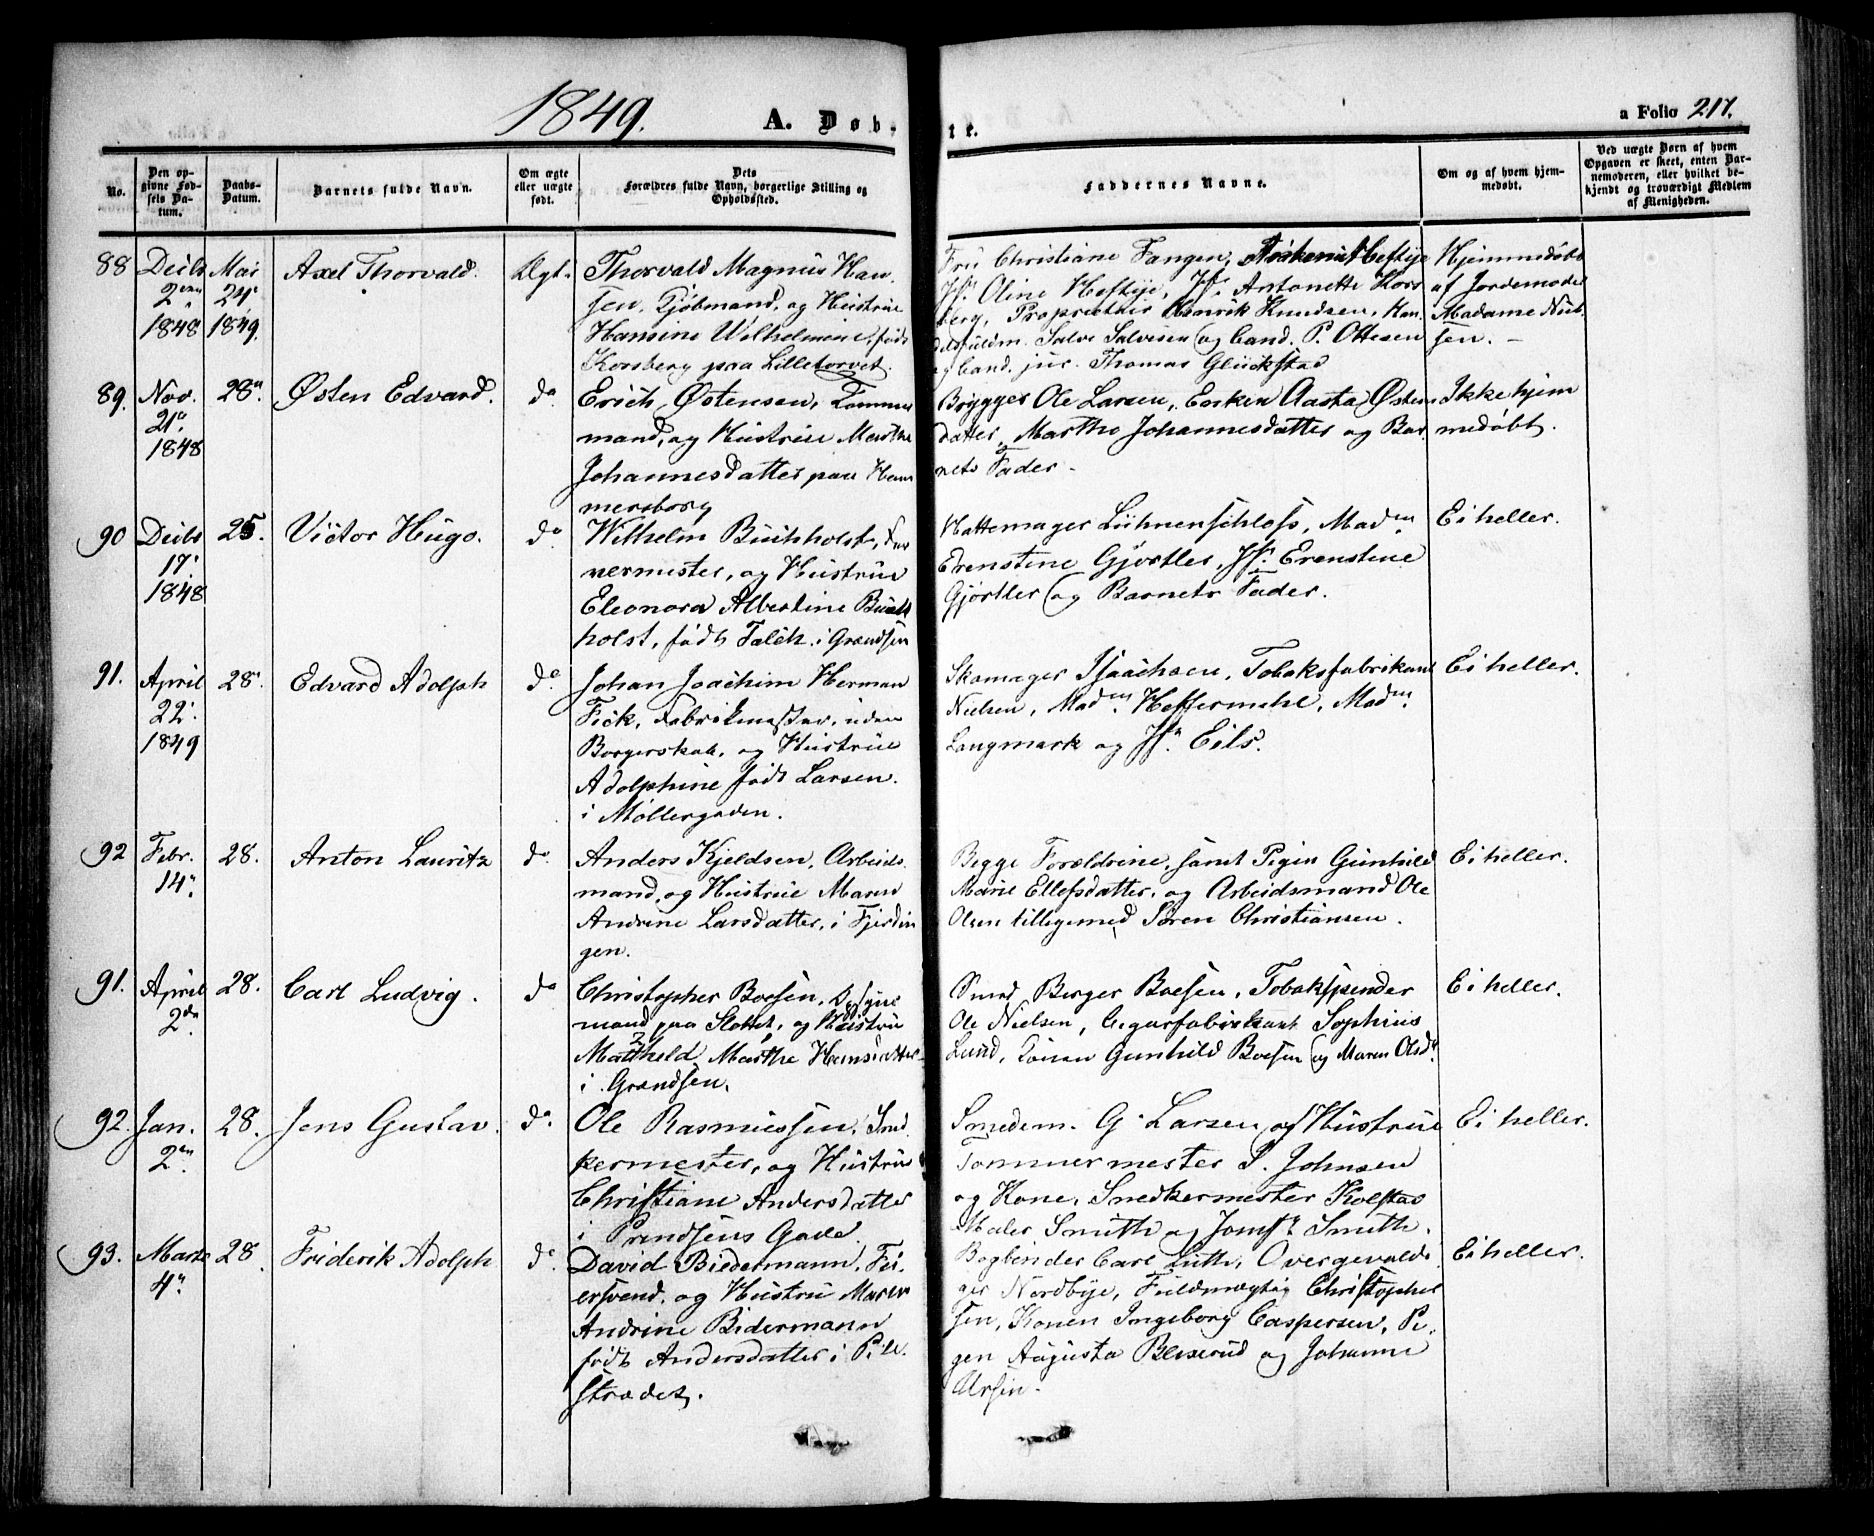 1849.
A. Døbte.
a Folio 217.
No.
Den opgivne Fødsels Datum.
Daabs-Datum.
Barnets fulde Navn.
Om ægte eller uægte født.
Dets Forældres fulde Navn, borgerlige Stilling og Opholdssted.
Faddernes Navne.
Om og af hvem hjemmedøbt.
Ved uægte Børn af hvem Opgaven er skeet, enten Barnemoderen, eller hvilket bekjendt og troværdigt Medlem af Menigheden.
88 Decbr 2den 1848 Mai 24. 1849. Axel Thorvald. Ægt.
Thorvald Magnus Han
sen, Kjöbmand, og Hustrue
Hansine Wilhelmine, født
Korsberg paa Lilletorvet.
Fru Christiane Fangen, Heftye
Jfr. Oline Heftye, Jfr. Antonette Kors
berg, Proprietair Henrik Knudsen, Han
delsfuldm. Salve Salvesen og Cand. P. Ottesen
og Cand. jur. Thomas Glückstad
Hjemmedøbt
af Jordemoder
Madame Niel
sen. -
89. Nov. 21. 1848 28. Østen Edvard. do
Erich Østensen, Tømmer
mand, og Hustrue Marthe
Johannesdatter paa Ham
mersborg
Brygger Ole Larsen, Enken Aasta Østens
datter, Marthe Johannesdatter og Bar
nets Fader -
Ikke hjem
medøbt.
90 Decbr 17. 1848 25. Victor Hugo. do
Wilhelm Buchholst, Far
vermester, og Hustrue
Eleonora Albertine Buch
holst, født Falch. i Grændsen
Hattemager Lühnenschloss, Madm
Erenstine Gjørtler, Jfr. Erenstine
Gjørtler og Barnets Fader.
Ei heller.
91. April 22. 1849 28. Edvard Adolph do
Johan Joachim Herman
Fick, Fabrikmester, uden
Borgerskab, og Hustrue
Adolphine født Larsen.
i Møllergaden.
Skomager Isaachsen, Tobaksfabrikant
Nielsen, Madm. Heffermehl, Madm.
Langmark og Jfr. Eils.
Ei heller.
92 Febr. 14. 28. Anton Lauritz do
Anders Kjeldsen, Arbeids
mand, og Hustrue Maren
Andrine Larsdatter, i Fjerdin
gen.
Begge Forældrene, samt Pigen Gunhild
Marie Ellefsdatter, og Arbeidsmand Ole
Olsen tilligemed Søren Christiansen.
Ei heller.
91. April 2den 28. Carl Ludvig. do
Christopher Boesen,
mand paa Slottet, og Hustrue
Mathhild Marthe Hansdatter
i Grændsen.
Smed Berger Boesen, Tobakspinder
Ole Nielsen, Cigarfabrikant Sophius
Lund, Konen Gunhild Boesen og Maren Olsd.
Ei heller.
92. Jan. 2en 28. Jens Gustav. do
Ole Rasmussen, Sned
kermester, og Hustrue
Christiane Andersdatter
i Prindsens Gade.
Smedem. G. Larsen og Hustrue
Tømmermester S. Johnsen
og Kone, Snedkermester Kolstad
Maler Smith og Jomfr. Smith.
Ei heller.
93. Marts 4. 28. Friderik Adolph do
David Biedermann, Fei
ersvend, og Hustru Maren
Andrine Bidermann
født Andersdatter i Pile
strædet.
Bogbinder Carl Lüth, Overgevaldi
ger Nordbye, Fuldmægtig Christopher
sen, Konen Ingeborg Caspersen, Pi
gen Augusta Bererud og Johanne
Ursin.
Ei heller.